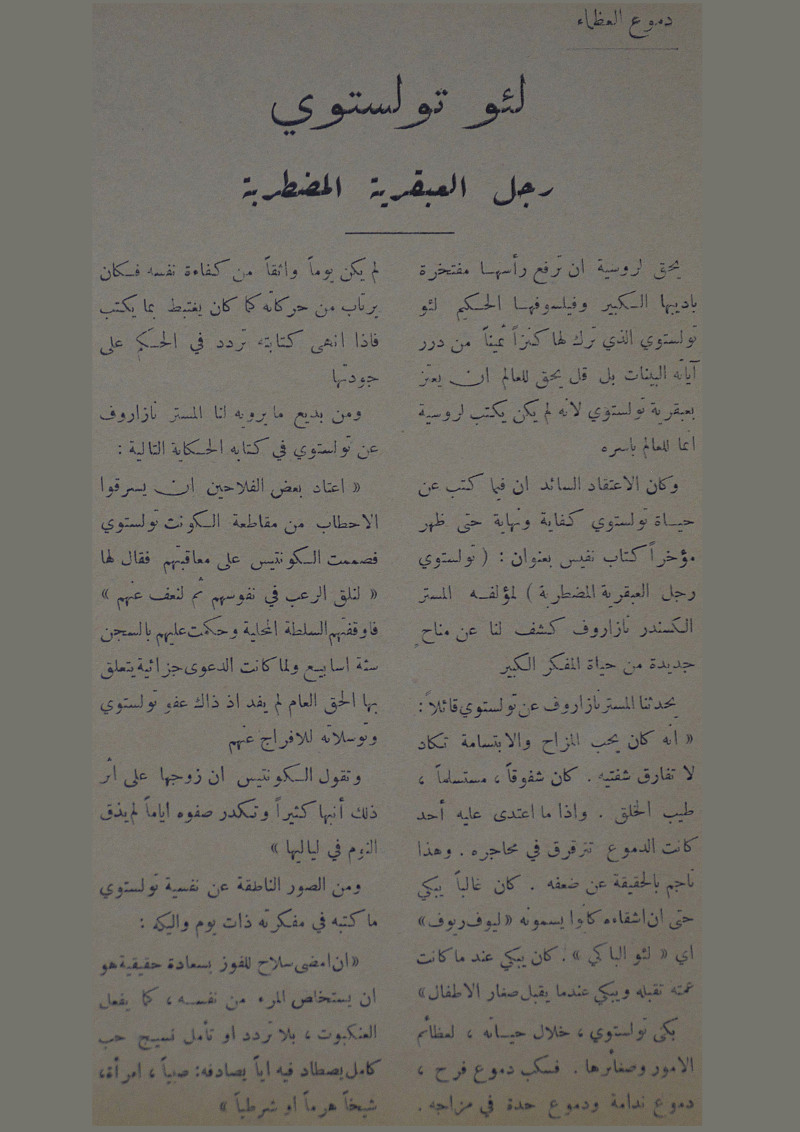 دموع العظماء
لئو تولستوي
رجل العبقرية المضطربة
يحق لروسية ان ترفع رأسها مفتخرة
باديبها الكبير وفيلسوفها الحكيم لئو
تولستوي الذي ترك لها كنزاً ثميناً من درر
آياته البينات بل قل يحق للعالم ان يعتز
بعبقرية تولستوي لانه لم يكن يكتب لروسية
انما للعالم باسره
وكان الاعتقاد السائد ان فيما كتب عن
حياة تولستوي كفاية ونهاية حتى ظهر
مؤخراً كتاب نفيس بعنوان : ( تولستوي
رجل العبقرية المضطربة ) لمؤلفه المستر
الكسندر نازاروف كشف لنا عن مناح
جديدة من حياة المفكر الكبير
يحدثنا المستر نازاروف عن تولستوي قائلاً :
« انه كان يحب المزاح والابتسامة تكاد
لا تفارق شفتيه . كان شفوقاً ، مستسلماً ،
طيب الخلق . واذا ما اعتدى عليه أحد
كانت الدموع تترقرق في محاجره . وهذا
ناجم بالحقيقة عن ضعفه . كان غالباً يبكي
حتى ان اشقاءه كانوا يسمونه « ليوف ريوف »
اي « لئو الباكي » . كان يبكي عند ما كانت
عمته تقبله ويبكي عندما يقبل صغار الاطفال »
بكى تولستوي ، خلال حياته ، لعظائم
الامور وصغائرها . فسكب دموع فرح ،
دموع ندامة ودموع حدة في مزاجه .
لم يكن يوماً واثقاً من كفاءة نفسه فكان
يرتاب من حركاته كما كان يغتبط بما يكتب
فاذا انهى كتابته تردد في الحكم على
جودتها
ومن بديع ما يرويه لنا المستر نازاروف
عن تولستوي في كتابه الحكاية التالية :
« اعتاد بعض الفلاحين ان يسرقوا
الاحطاب من مقاطعة الكونت تولستوي
فصممت الكونتيس على معاقبتهم فقال لها
« لنلق الرعب في نفوسهم ثم لنعف عنهم »
فاوقفتهم السلطة المحلية وحكمت عليهم بالسجن
ستة اسابيع ولما كانت الدعوى جزائية يتعلق
بها الحق العام لم يفد اذ ذاك عفو تولستوي
وتوسلاته للافراج عنهم
وتقول الكونتيس ان زوجها على اثر
ذلك أنبها كثيراً وتكدر صفوه اياماً لم يذق
النوم في لياليها »
ومن الصور الناطقة عن نفسية تولستوي
ما كتبه في مفكرته ذات يوم واليكه :
« ان امضى سلاح للفوز بسعادة حقيقية هو
ان يستخلص المرء من نفسه ، كما يفعل
العنكبوت ، بلا تردد او تأمل نسيج حب
كامل يصطاد فيه اياً يصادفه : صبياً ، امرأة ،
شيخاً هرماً او شرطياً »